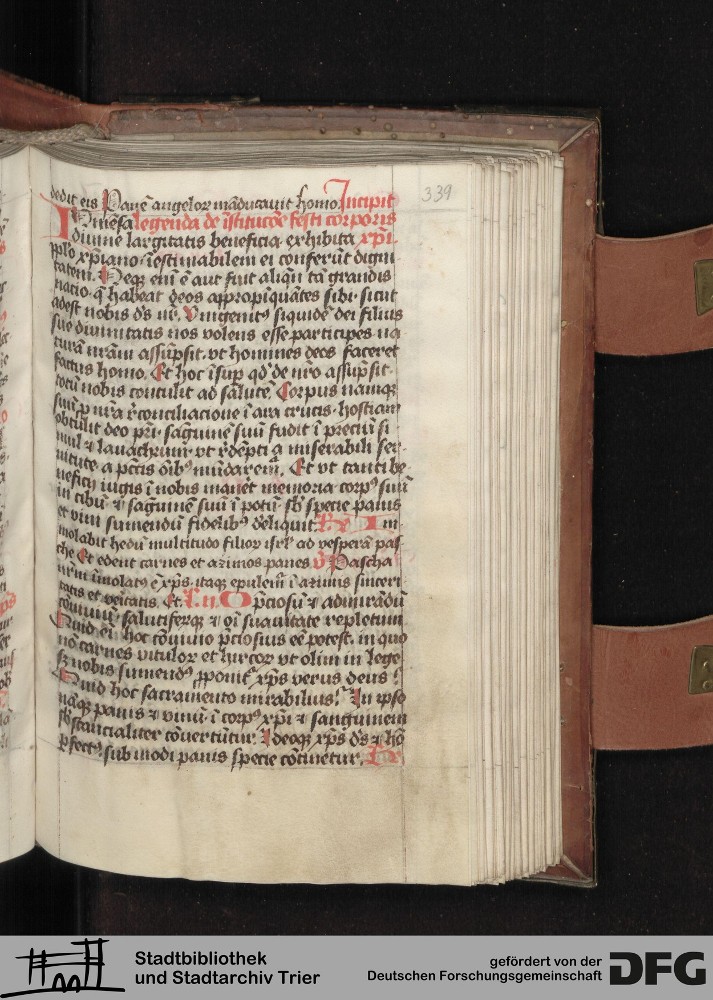 339
dedit eis Panē angelor māducauit homo. Incipit
Inmēsa legenda de īstitucōe festi corporis
diuine largitatis beneficia exhibita xp̄i
pplo xp̄iano īestimabilem ei conferūt digni
tatem. Neqꝫ em̄ ē aut fuit aliqn̄ tā grandis
natio q̄ habeat deos appropīquātes sibi sicut
adest nobis d̄s nr̄. Vnigenitꝰ siquidē dei filius
sue diuinitatis nos volens esse participes na
turā nr̄am assūpsit vt homines deos faceret
factus homo. Et hoc īsup qd̄ de nr̄o assūpsit
totū nobis contulit ad salutē. Corpus namqꝫ
suū p nr̄a recōciliacione ī ara crucis hostiam
obtulit deo pr̄i sāguinē suū fudit ī preciū si
mul ⁊ lauachrum vt rēdēpti a miserabili ser
uitute a pctīs oībꝰ mūdarem̄. Et vt tanti be
neficij iugis ī nobis manēt memoria corpꝰ suū
in cibū ⁊ sāguinē suū ī potū sb̄ specie panis
et vini sumendū fidelibꝰ deliquit. R̄ Im
molabit hedū multitudo filior isrl̄ ad vesperā pas
che Et edent carnes et azimos panes v̄ Pascha
nr̄m īmolatꝰ ē xp̄s itaqꝫ epulem̄ ī azimis sinceri
tatis et veritatis. Et. L. ij. O p̄ciosū ⁊ admirādū
cōuiuiū salutiferū ⁊ oī suauitate repletum
Quid em̄ hoc cōuiuio p̄ciosius eē potest. in quo
nō carnes vitulor et hircor vt olim in lege
sꝫ nobis sumendꝰ ꝓponit̄ xp̄s verus deus
Quid hoc sacramento mirabilius. In ipso
nāqꝫ panis ⁊ vinū ī corpꝰ xp̄i ⁊ sanguinem
sb̄stancialiter cōuertūtur. Ideoqꝫ xp̄s d̄s ⁊ hō
ꝑfectꝰ sub modi panis specie cōtinetur. R̄
Stadtbibliothek
und Stadtarchiv Trier
gefördert von der
Deutschen Forschungsgemeinschaft
DFG